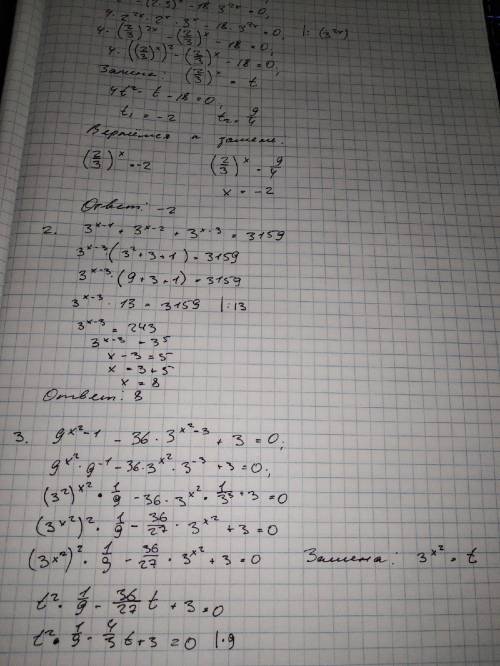 - (2·3)ˣ - 18·3²ˣ = 0;
4·2²ˣ - 2ˣ·3ˣ - 18·3²ˣ = 0; |:(3²ˣ)
4·(2/3)²ˣ - (2/3)ˣ - 18 = 0;
4·((2/3)ˣ)² - (2/3)ˣ - 18 = 0;
Замена: (2/3)ˣ = t
4t² - t - 18 = 0;
t₁ = -2 t₂ = 9/4
Вернёмся к замене:
(2/3)ˣ = -2 (2/3)ˣ = 9/4
x = -2
Ответ: -2
2. 3ˣ⁻¹ + 3ˣ⁻² + 3ˣ⁻³ = 3159
3ˣ⁻³(3² + 3 + 1) = 3159
3ˣ⁻³·(9 + 3 + 1) = 3159
3ˣ⁻³ · 13 = 3159 |:13
3ˣ⁻³ = 243
3ˣ⁻³ = 3⁵
x - 3 = 5
x = 3 + 5
x = 8
Ответ: 8
3. 9^(x²-1) - 36·3^(x²-3) + 3 = 0;
9^(x²)·9⁻¹ - 36·3^(x²)·3⁻³ + 3 = 0;
(3²)^(x²)·1/9 - 36·3^(x²)·1/3³ + 3 = 0
(3^(x²))²·1/9 - 36/27·3^(x²) + 3 = 0
(3^(x²))²·1/9 - 36/27·3^(x²) + 3 = 0 Замена: 3^(x²) = t
t²·1/9 - 36/27 t + 3 = 0
t²·1/9 - 4/3 t + 3 = 0 |·9